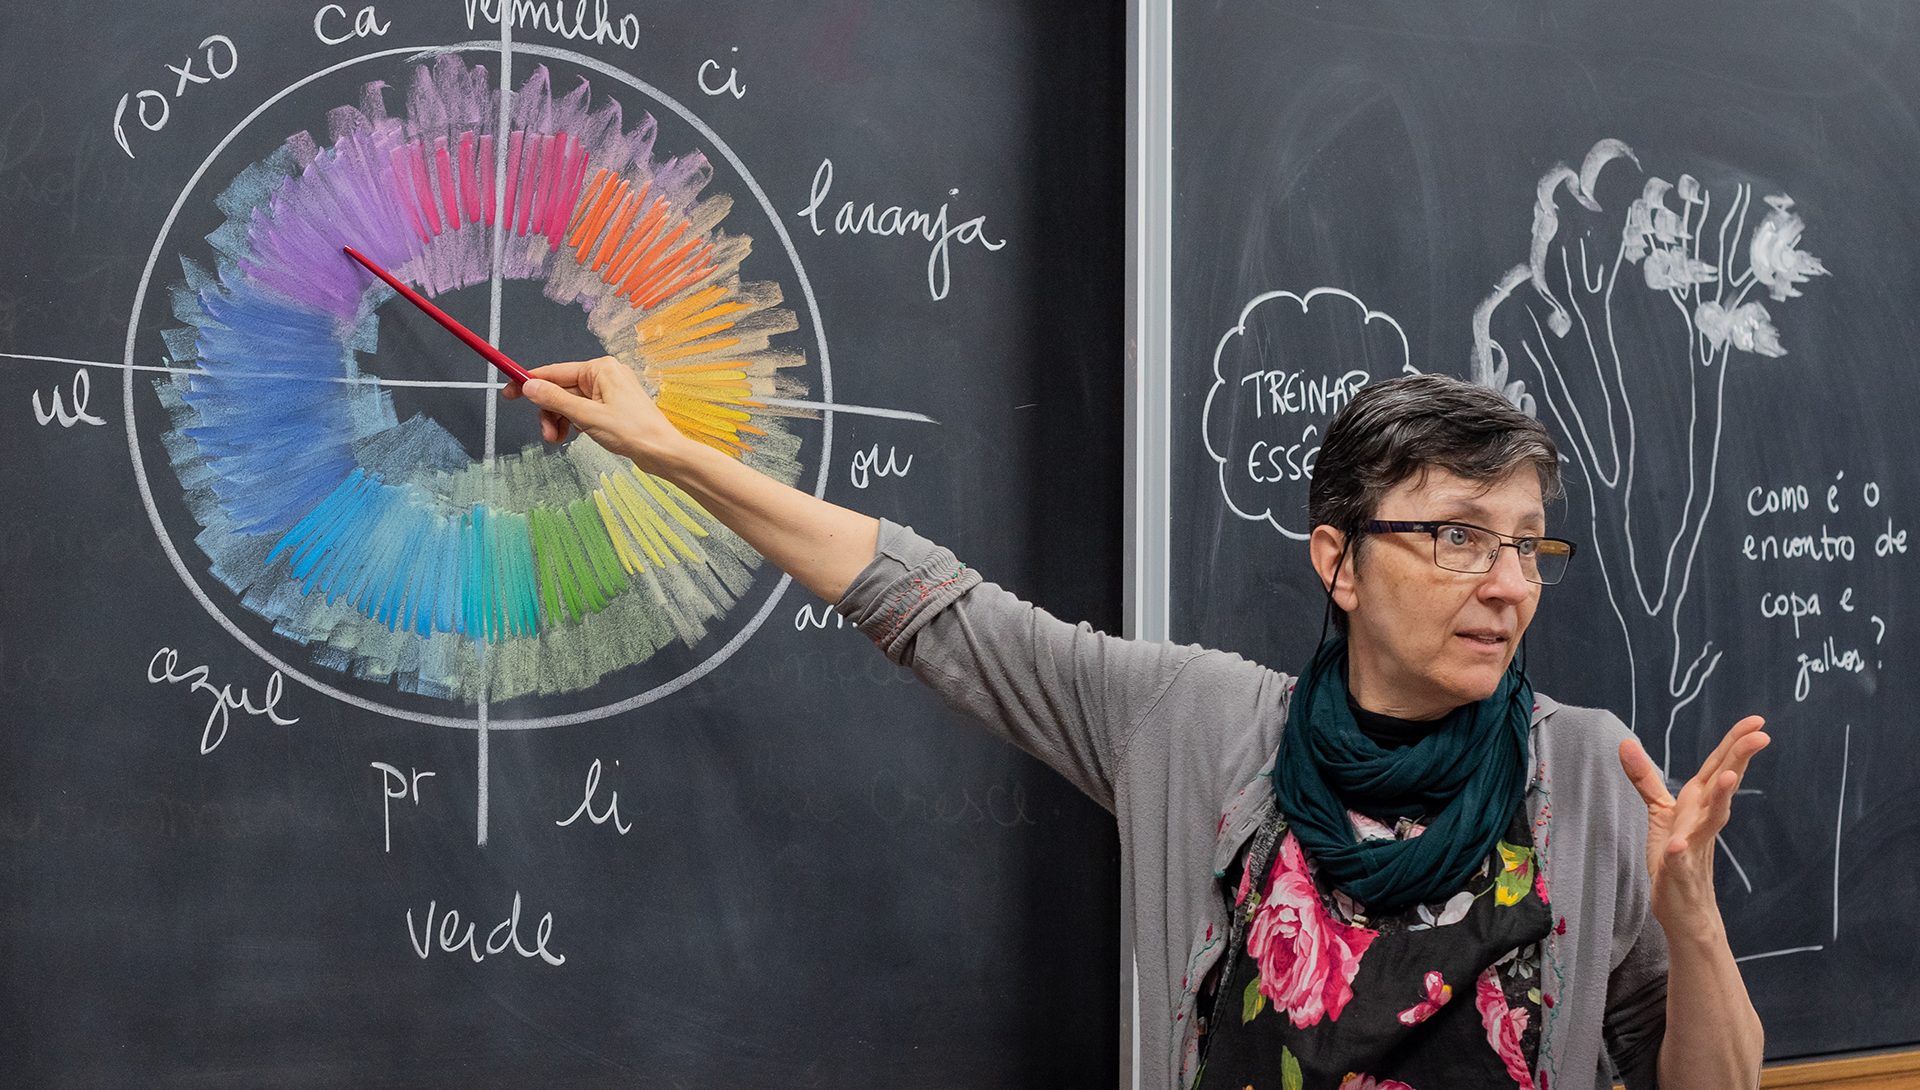 ca
vermelho
ci
roxo
laranja
ul
ou
azul
pr
li
verde
TREINAR
como é o
encontro de
copa e
galhos?
cresce.